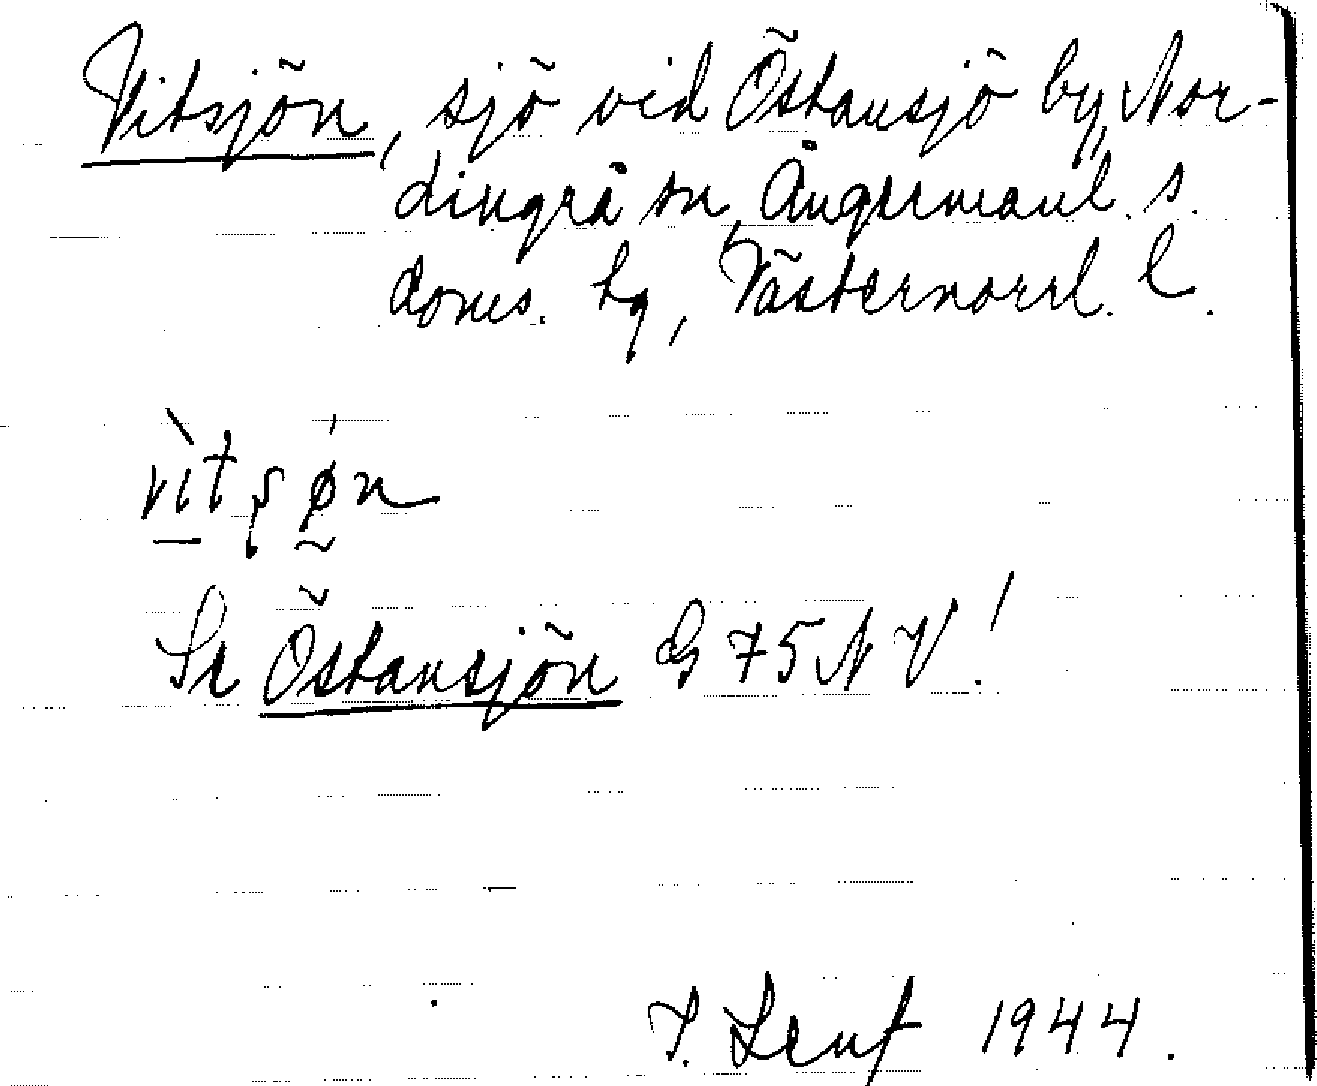 Vitsjön, sjö vid Östansjö by, Nor-
dingrå sn, Ångermanl. s.
doms. hq, Västernorrl. l.
vìt ʂǿn
Se Östansjön G 75 NV!
T. Leuf 1944.